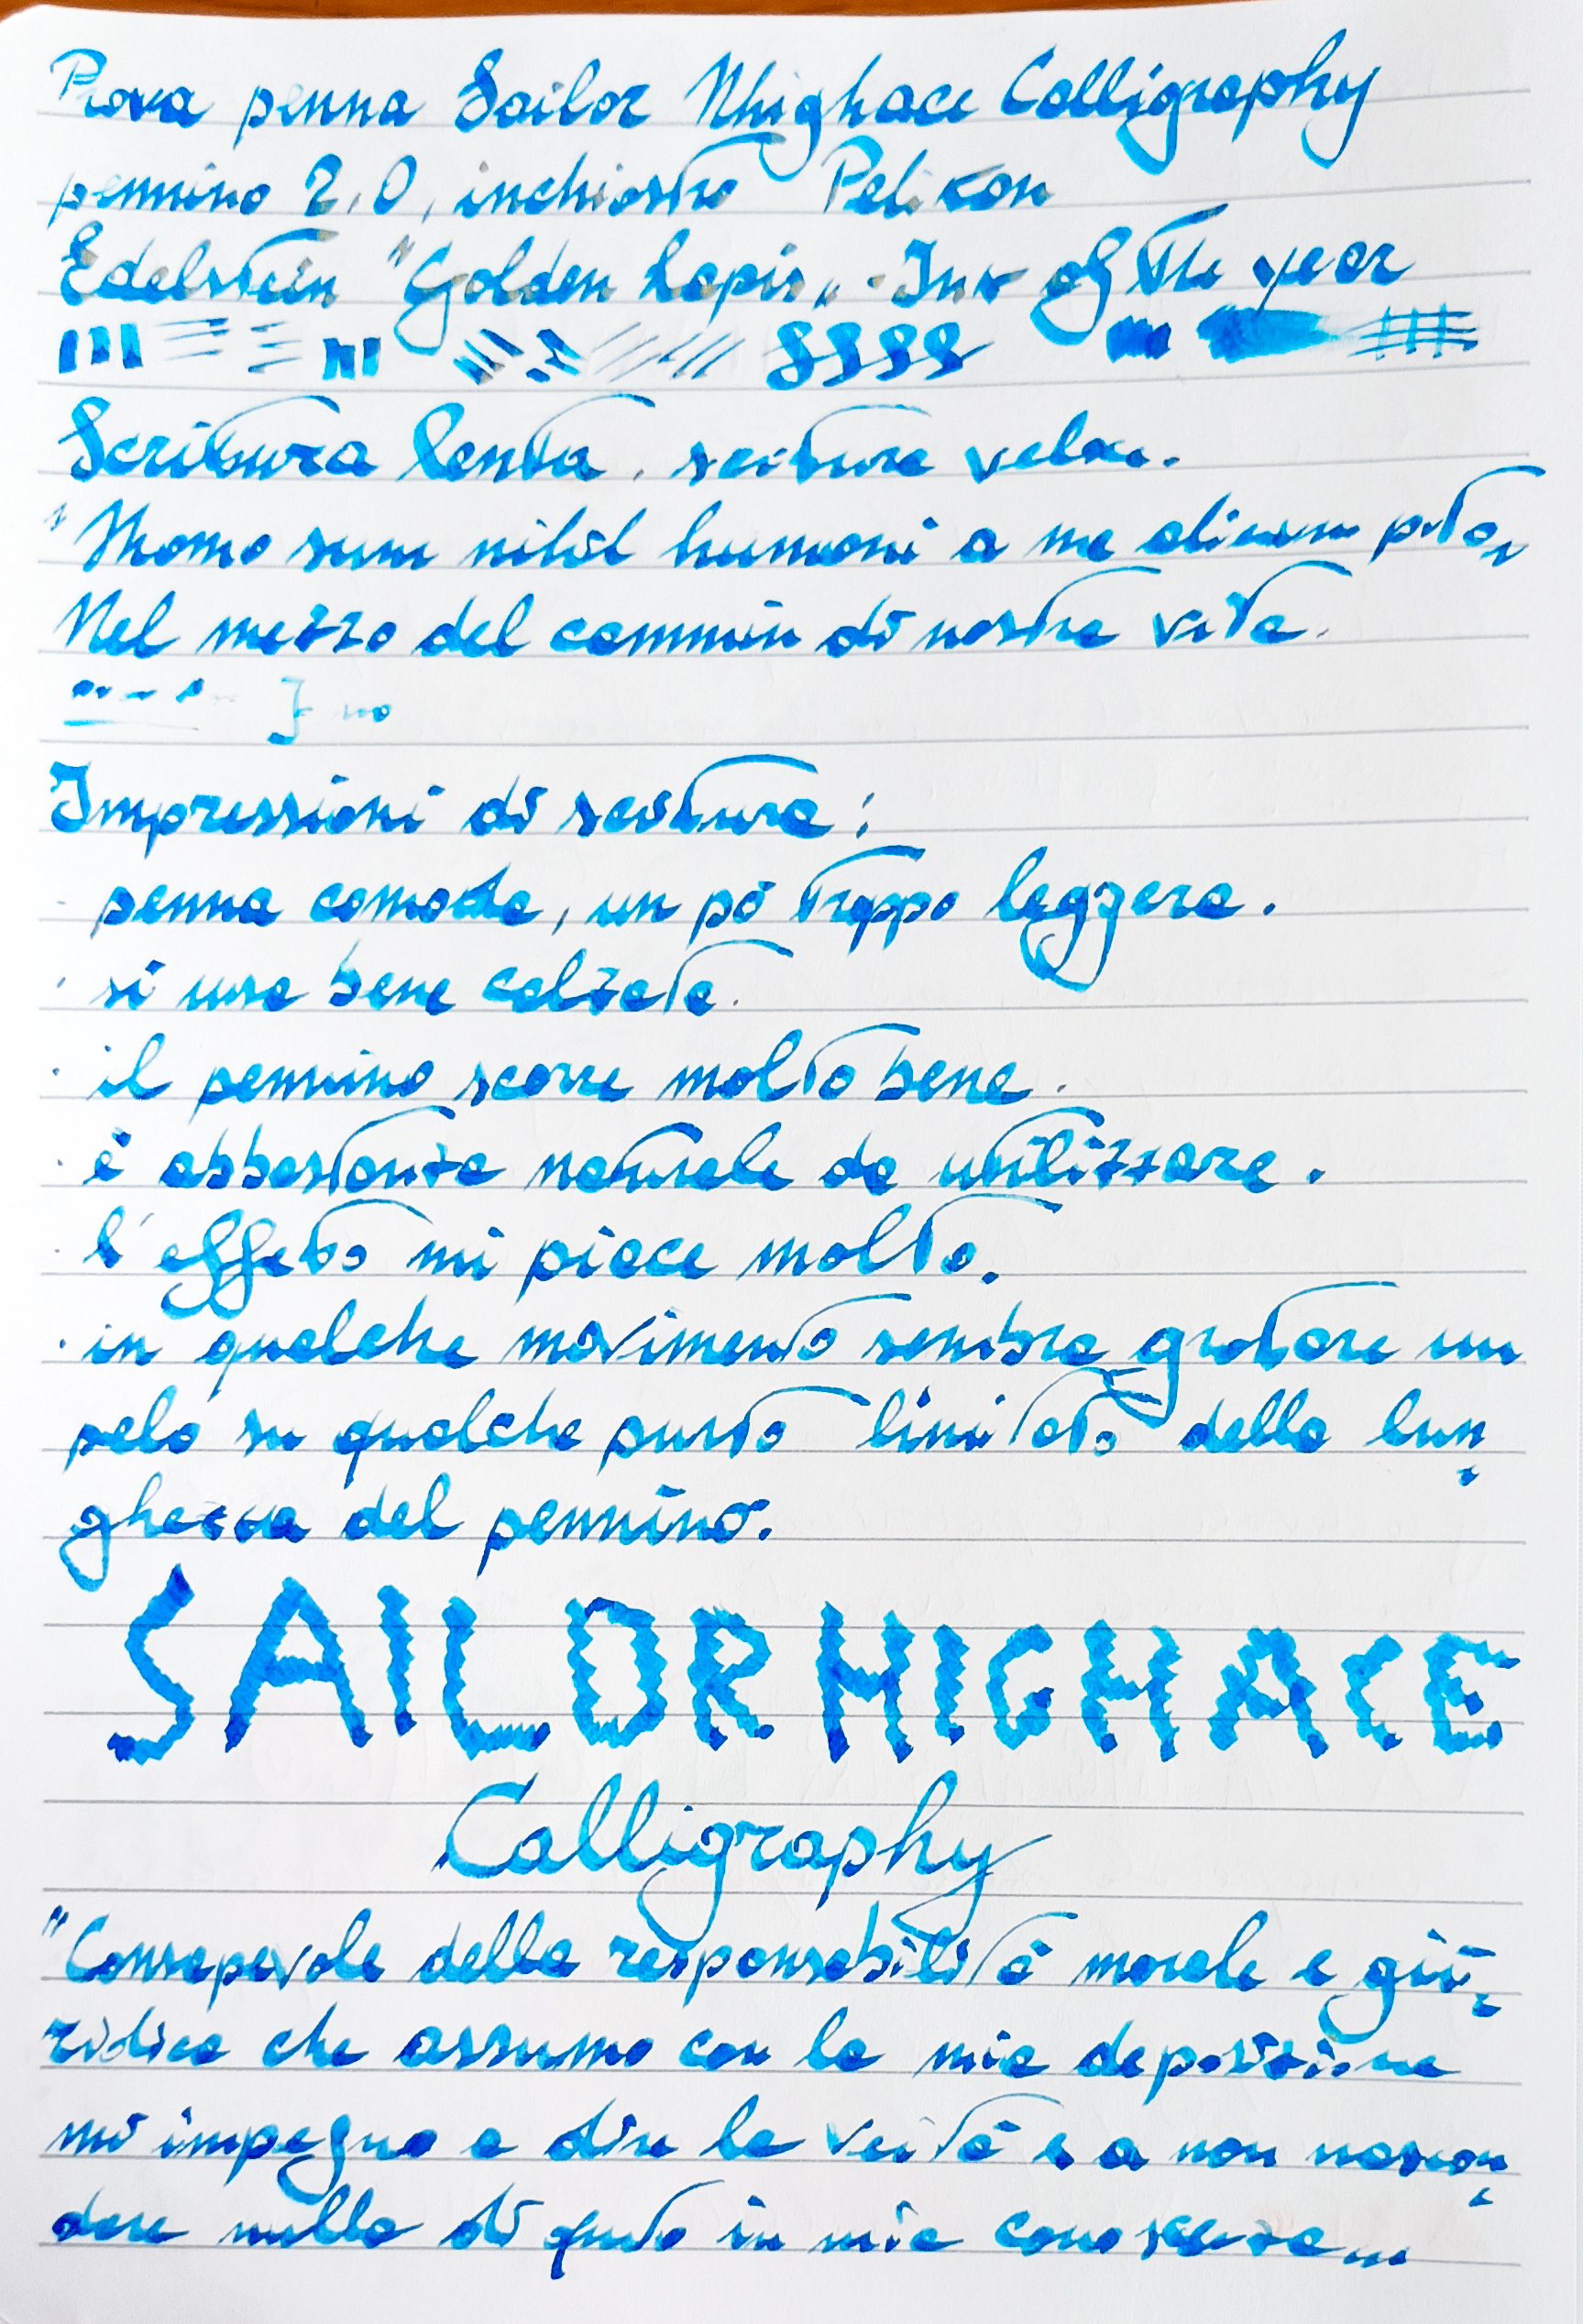 Prova penna Sailor Hhighace Calligraphy
pennino 2.0, inchiostro Pelikan
Edelstein "Golden Lapis". Ink of the year
Scrittura lenta, scrittura veloce.
"Homo sum nihil humani a me alienum puto"
Nel mezzo del cammin di nostra vita.
Impressioni di scrittura:
- penna comoda, un pò troppo leggera.
· si usa bene calzata.
· il pennino scorre molto bene.
· è abbastanza naturale da utilizzare.
· l'effetto mi piace molto.
· in qualche movimento sembra grattare un
pelo su qualche punto limitato della lun-
ghezza del pennino.
SAILOR HIGHACE
Calligraphy
"Consapevole della responsabilità morale e giu-
ridica che assumo con la mia deposizione
mi impegno a dire la verità e a non nascon-
dere nulla di quanto in mia conoscenza...